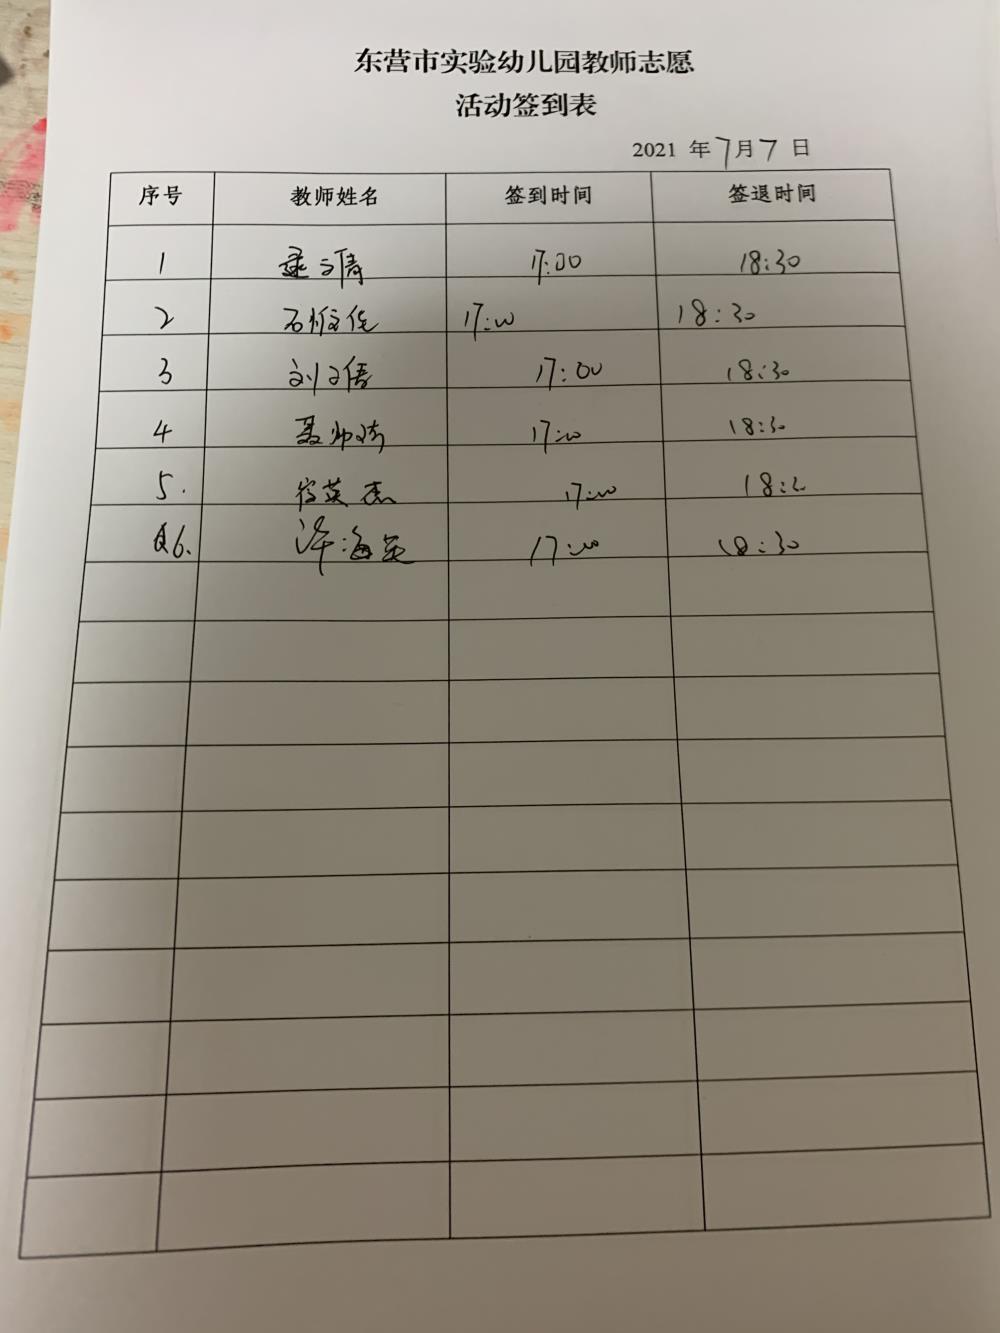 东营市实验幼儿园教师志愿
活动签到表
2021 年 7月 7 日
序号 教师姓名 签到时间 签退时间
1 17:00 18:30
2 17:00 18:30
3 刘文倩 17:00 18:30
4 聂帅琦 17:00 18:30
5. 徐英杰 17:00
6. 海英 17:00 18:30